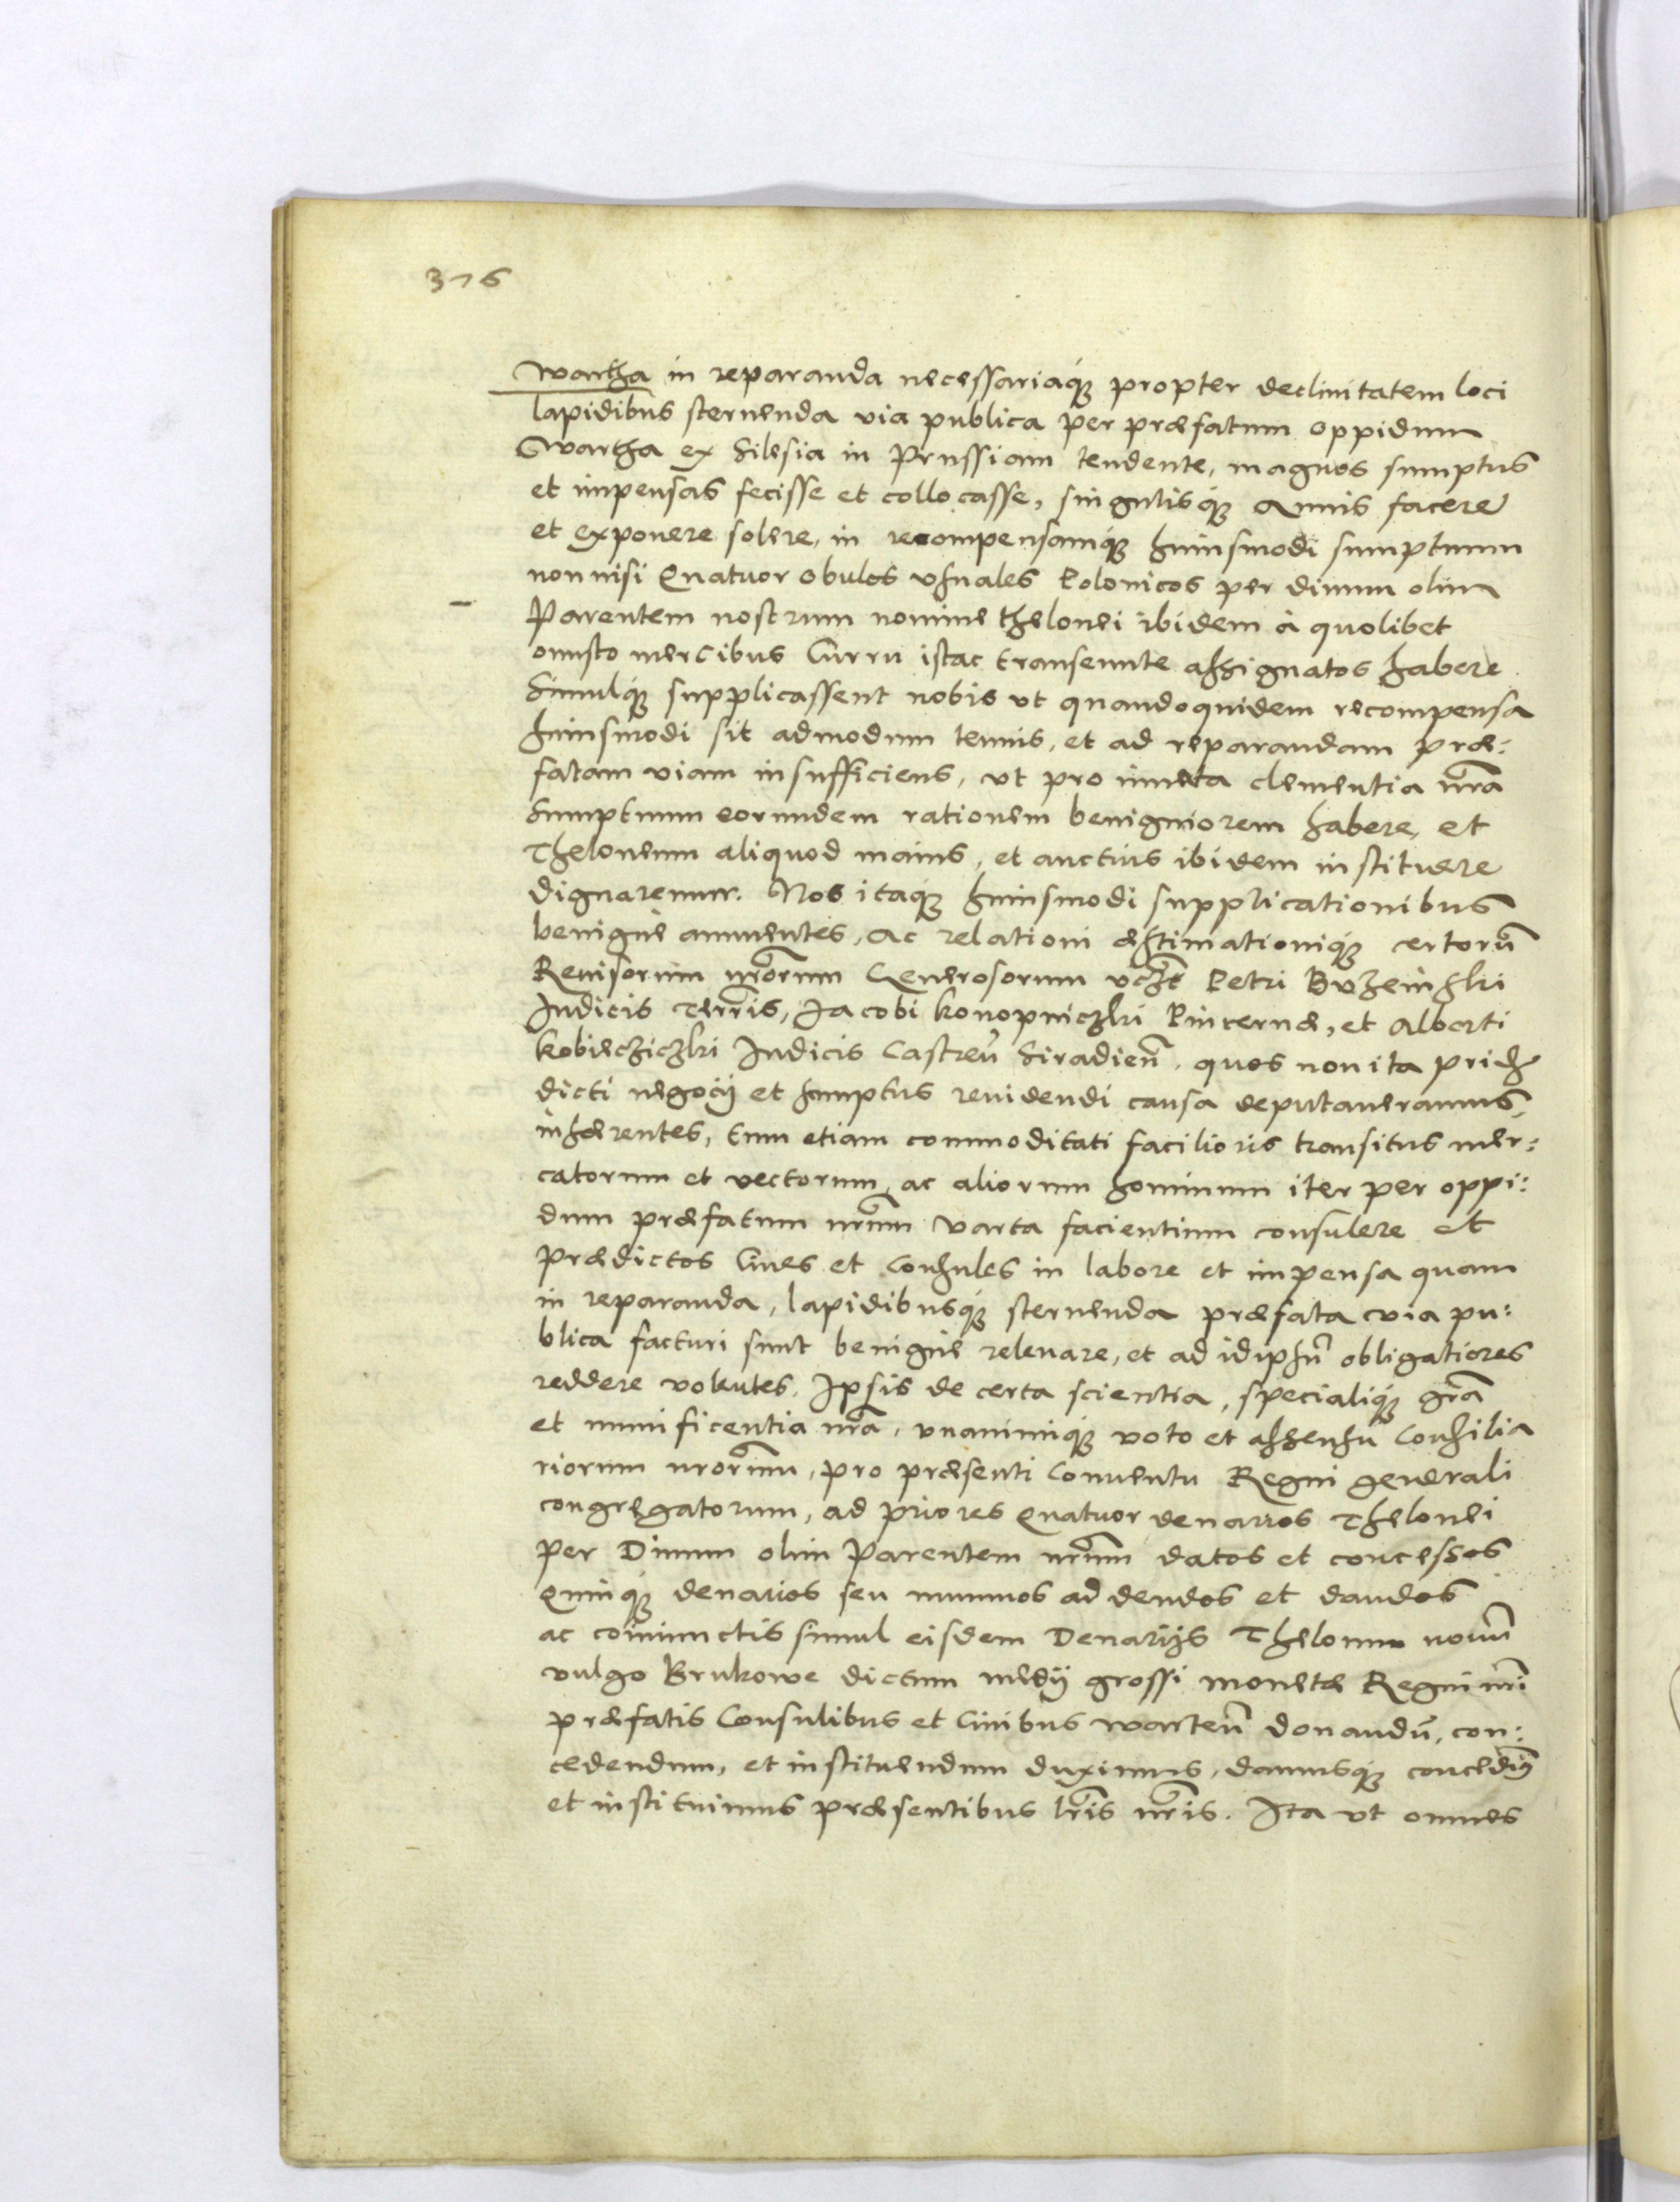 376
wartha in reparanda necessariaque propter declivitatem loci
lapidibus sternenda via publica per præfatum oppidum
Wartha ex Silesia in Prussiam tendente, magnos sumptus
et impensas fecisse et collocasse, singulisque Annis facere
et exponere solere, in recompensamque huiusmodi sumptuum
non nisi Quatuor obulos usuales Polonicos per divum olim
Parentem nostrum nomine thelonei ibidem à quolibet
onusto mercibus Curru istac transeunte assignatos habere
Simulque supplicassent nobis ut quandoquidem recompensa
huiusmodi sit admodum tenuis, et ad reparandam præ:
fatam viam insufficiens, ut pro innata clementia nrã
Sumptuum eorundem rationem benigniorem habere, et
Theloneum aliquod maius, et auctius ibidem instituere
dignaremur. Nos itaque huiusmodi supplicationibus
benigne annuentes, Ac relationi æstimationique certorũ
Revisorum nrõrum Generosorum Petri Buzeinski
Iudicis Terrñis, Jacobi konopniczki Pincernæ, et Alberti
kobierzicki Iudicis Castreñ Siradieñ. quos non ita pridẽ
dicti negocij et sumptus revidendi causa deputaveramus,
inhærentes, tum etiam commoditati facilioris transitus mer:
catorum et vectorum, ac aliorum hominum iter per oppi:
dum præfatum nrũm varta facientium consulere et
prædictos Cives et Consules in labore et impensa quam
in reparanda, lapidibusque sternenda præfata via pu:
blica facturi sunt benigne relevare, et ad idipsũ obligatiores
reddere volentes. Ipsis de certa scientia, specialique grã
et munificentia nrã, unanimique voto et assensu Consilia
riorum nrorũm, pro præsenti Conventu Regni generali
congregatorum, ad priores Quatuor denarios Thelonei
per Divum olim Parentem nrũm datos et concessos
Quinque denarios seu nummos addendos et dandos
ac coniunctis simul eisdem Denarijs Thelonm novũ
vulgo Brukowe dictum medij grossi monetæ Regni nrĩ
præfatis Consulibus et Civibus warteñ donandũ, con:
cedendum, et instituendum duximus, damusque concedimꝰ
et instituimus præsentibus lrĩs nrĩs. Ita ut omnes